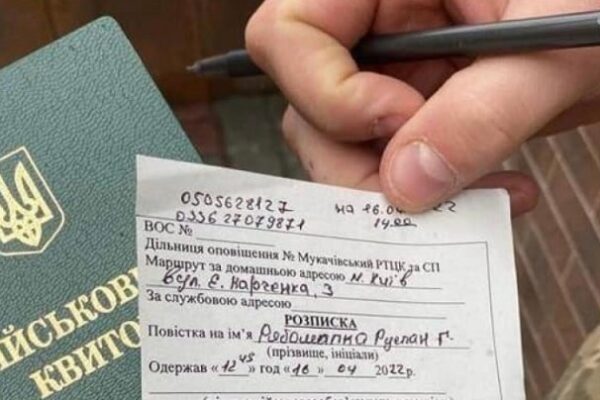 0505628127 на 16.04 22
0336 27079871 14.00
ВОС №
Дільниця оповіщення № Мукачівський РТЦК та СП
Маршрут за домашньою адресою м. Київ
вул. Є. Харченка, 3
За службовою адресою
РОЗПИСКА
Повістка на ім'я Рябошапка Руслан Г.
(прізвище, ініціали)
Одержав «12 45» год «16» 04 2022р.
ЙСЬКОВ
КВИТО